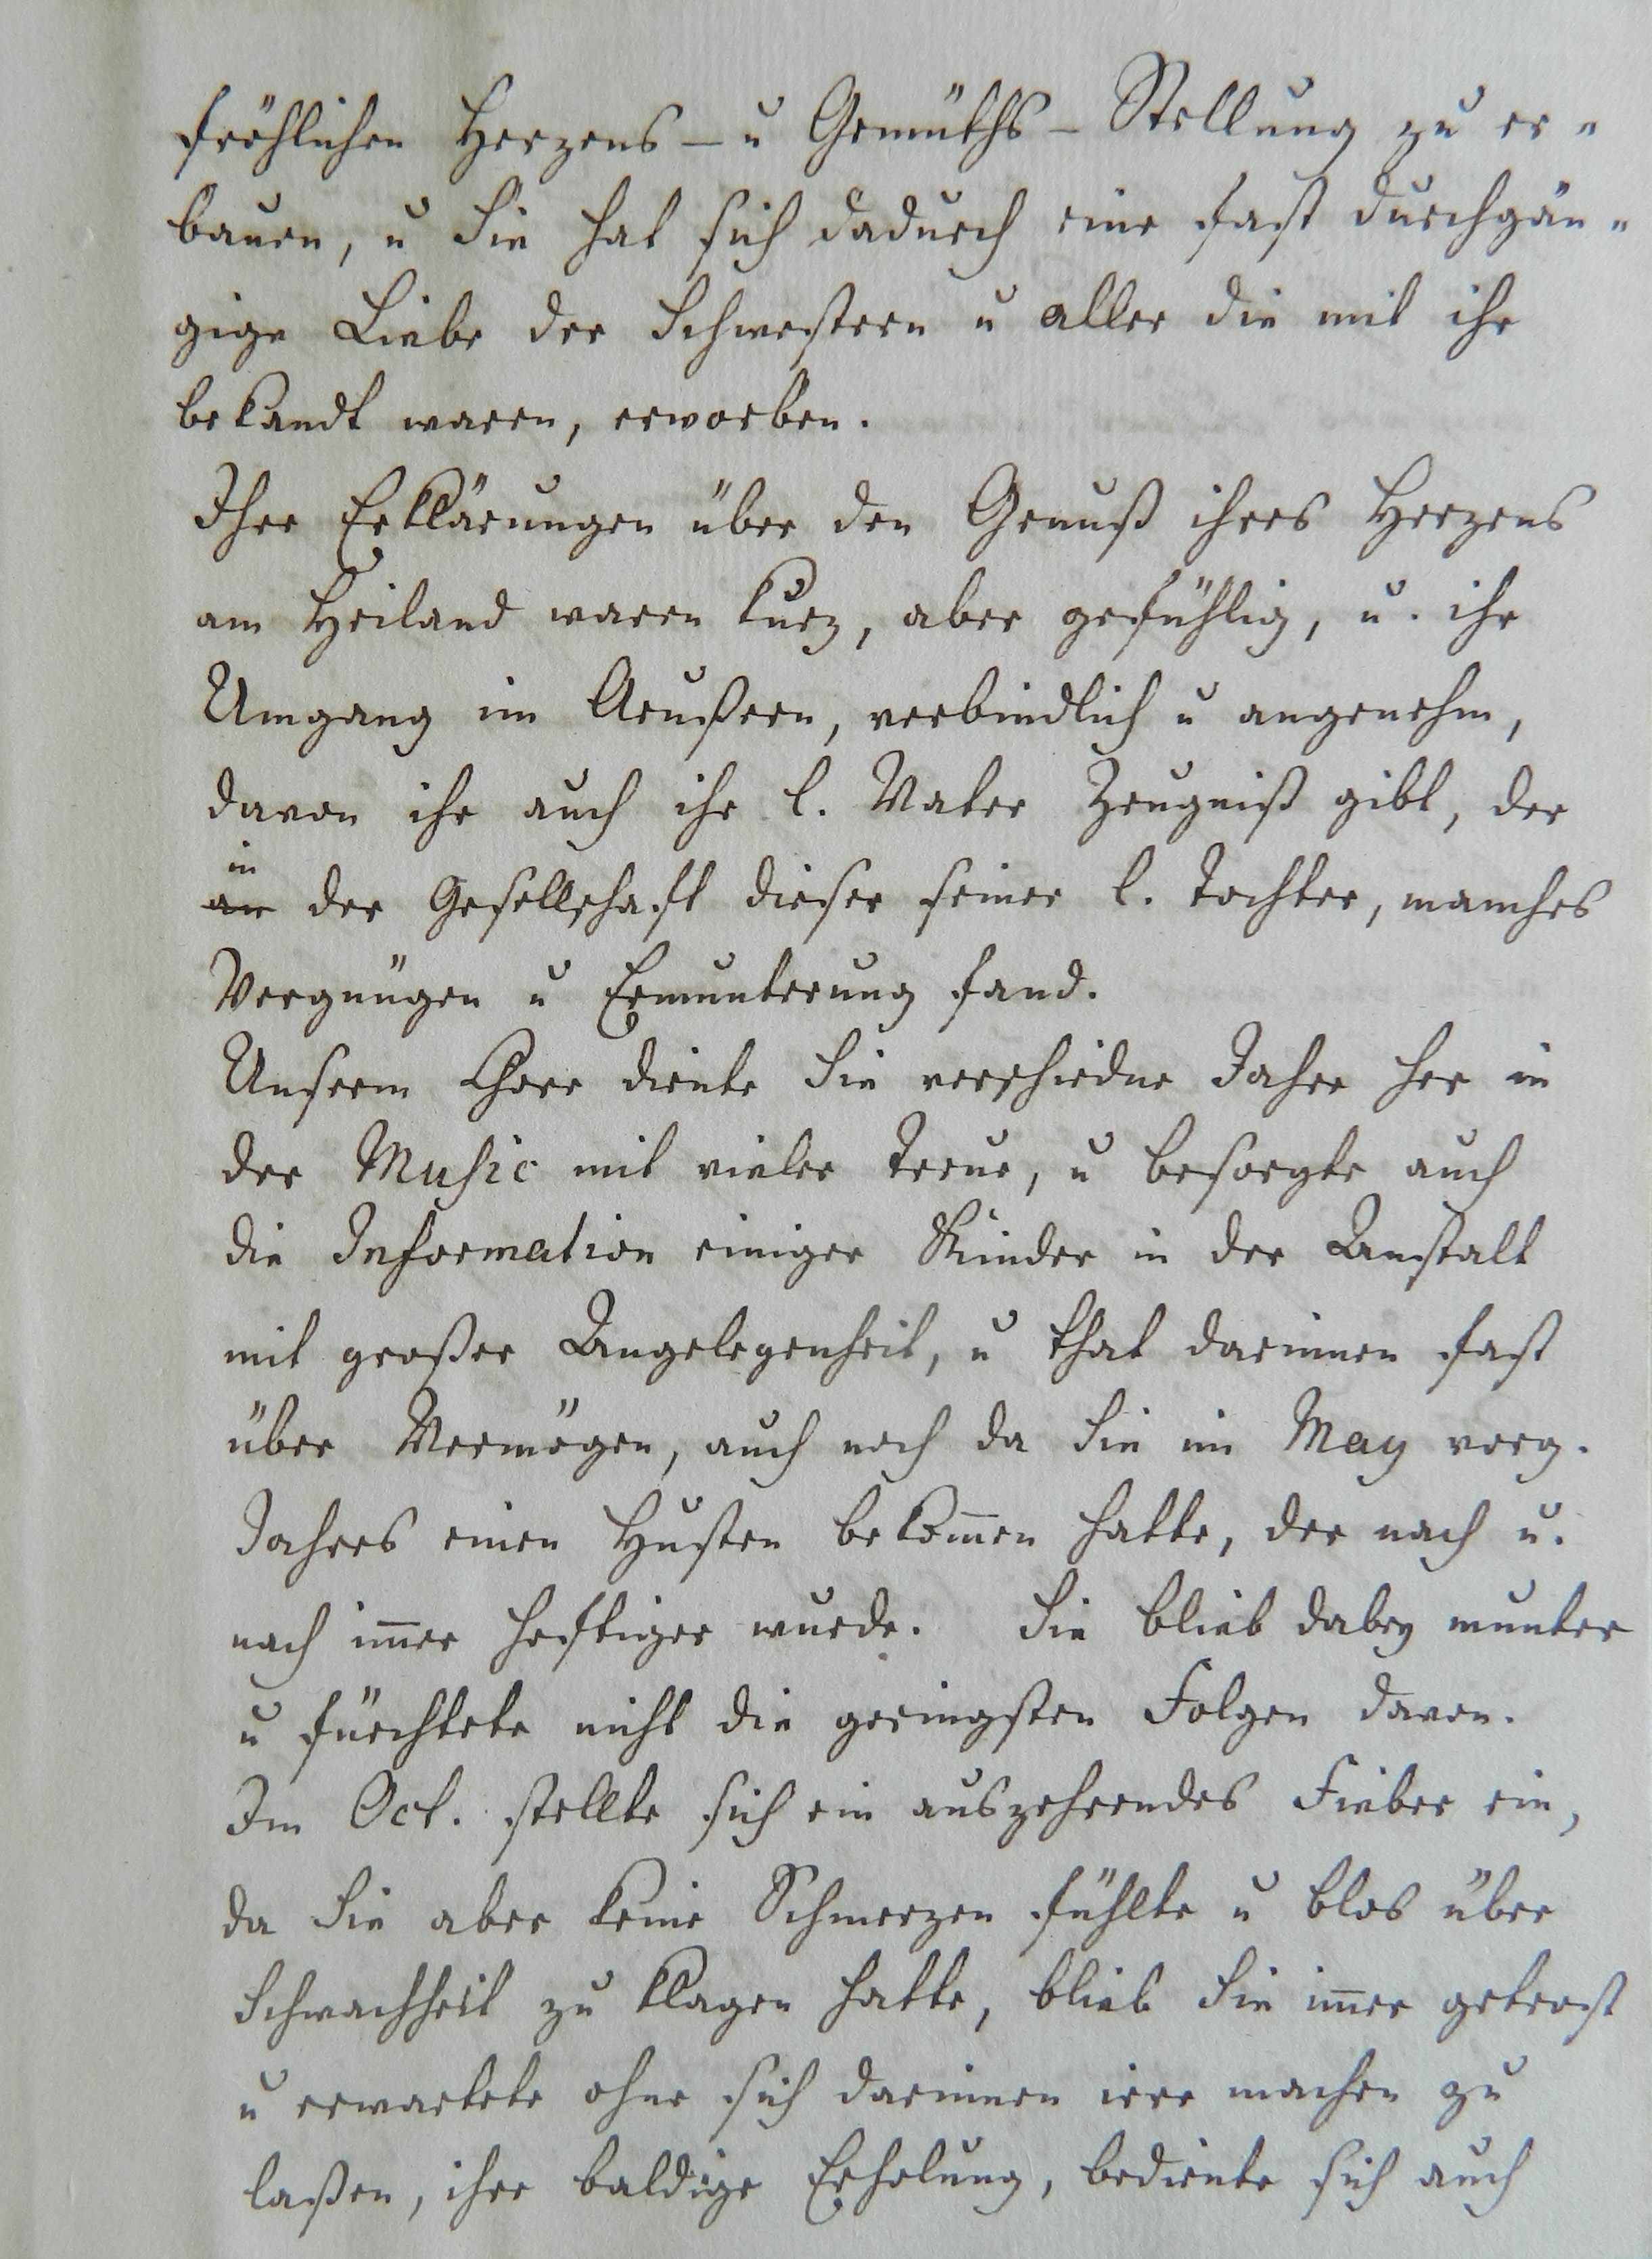 fröhlichen Herzens- u Gemüths-Stellung zu er-
bauen, u Sie hat sich dadurch eine fast durchgän-
gige Liebe der Schwestern u aller die mit ihr
bekandt waren, erworben.
Ihre Erklärungen über den Genuß ihres Herzens
am Heiland waren kurz, aber gefühlig, u. ihr
Umgang im Aeußern, verbindlich u angenehm,
davon ihr auch ihr l. Vater Zeugniß gibt, der
in
an der Gesellschaft dieser seiner l. Tochter, manches
Vergnügen u Ermunterung fand.
Unserm Chore diente Sie verschiedne Jahre her in
der Music mit vieler Treue, u besorgte auch
die Information einiger Kinder in der Anstalt
mit großer Angelegenheit, u that darinnen fast
über Vermögen, auch noch da Sie im May vorg.
Jahres einen Husten bekom̄en hatte, der nach u.
nach im̄er heftiger wurde. Sie blieb dabey munter
u fürchtete nicht die geringsten Folgen davon.
Im Oct. stellte sich ein auszehrendes Fieber ein,
da Sie aber keine Schmerzen fühlte u blos über
Schwachheit zu klagen hatte, blieb Sie im̄er getrost
u erwartete ohne sich darinnen irre machen zu
laßen, ihre baldige Erholung, bediente sich auch